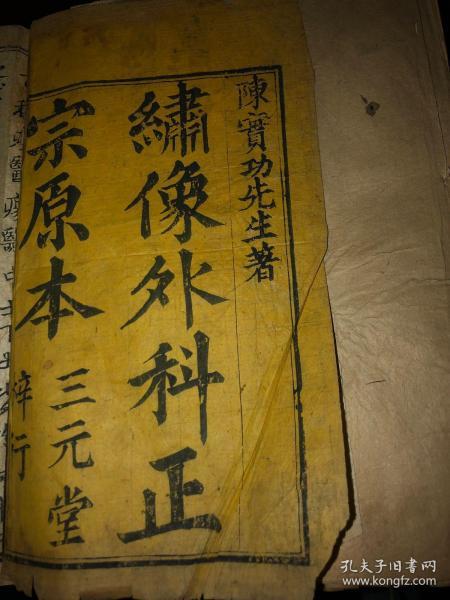 陳實功先生著
繡像外科正
宗原本
三元堂
梓行
孔夫子旧书网
www.kongfz.com